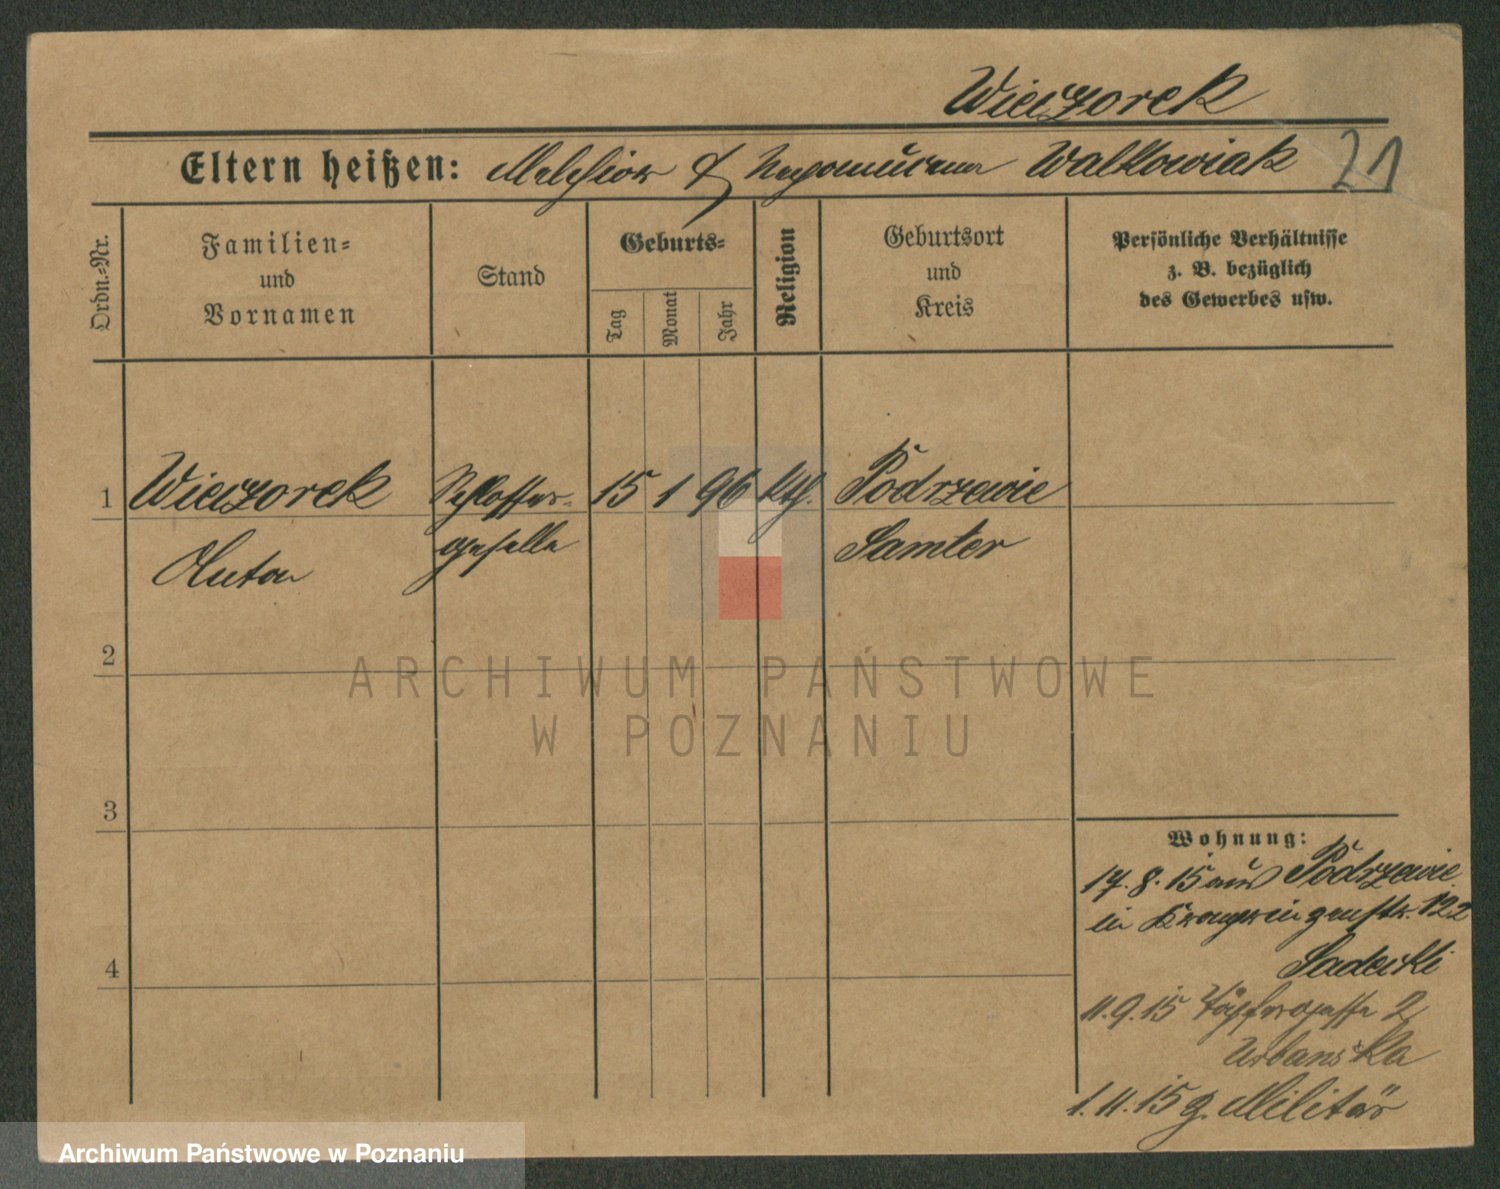 Wieczorek
Eltern heißen: Melchior & Nepomucena Walkowiak 21
Ordn.=Nr.
Familien=
und
Vornamen
Stand
Geburts=
Tag
Monat
Jahr
Religion
Geburtsort
und
Kreis
Persönliche Verhältnisse
z. B. bezüglich
des Gewerbes usw.
1 Wieczorek Schlosser= 15 1 96 kth. Podrzewie
Anton geselle Samter
2
3
4
Wohnung:
17.8.15 aus Podrzewie
in Kronprinzenstr. 122
Sadecki
11.9.15 Töpfergasse 2
Urbanska
1.11.15 z. Militär
ARCHIWUM PAŃSTWOWE
W POZNANIU
Archiwum Państwowe w Poznaniu